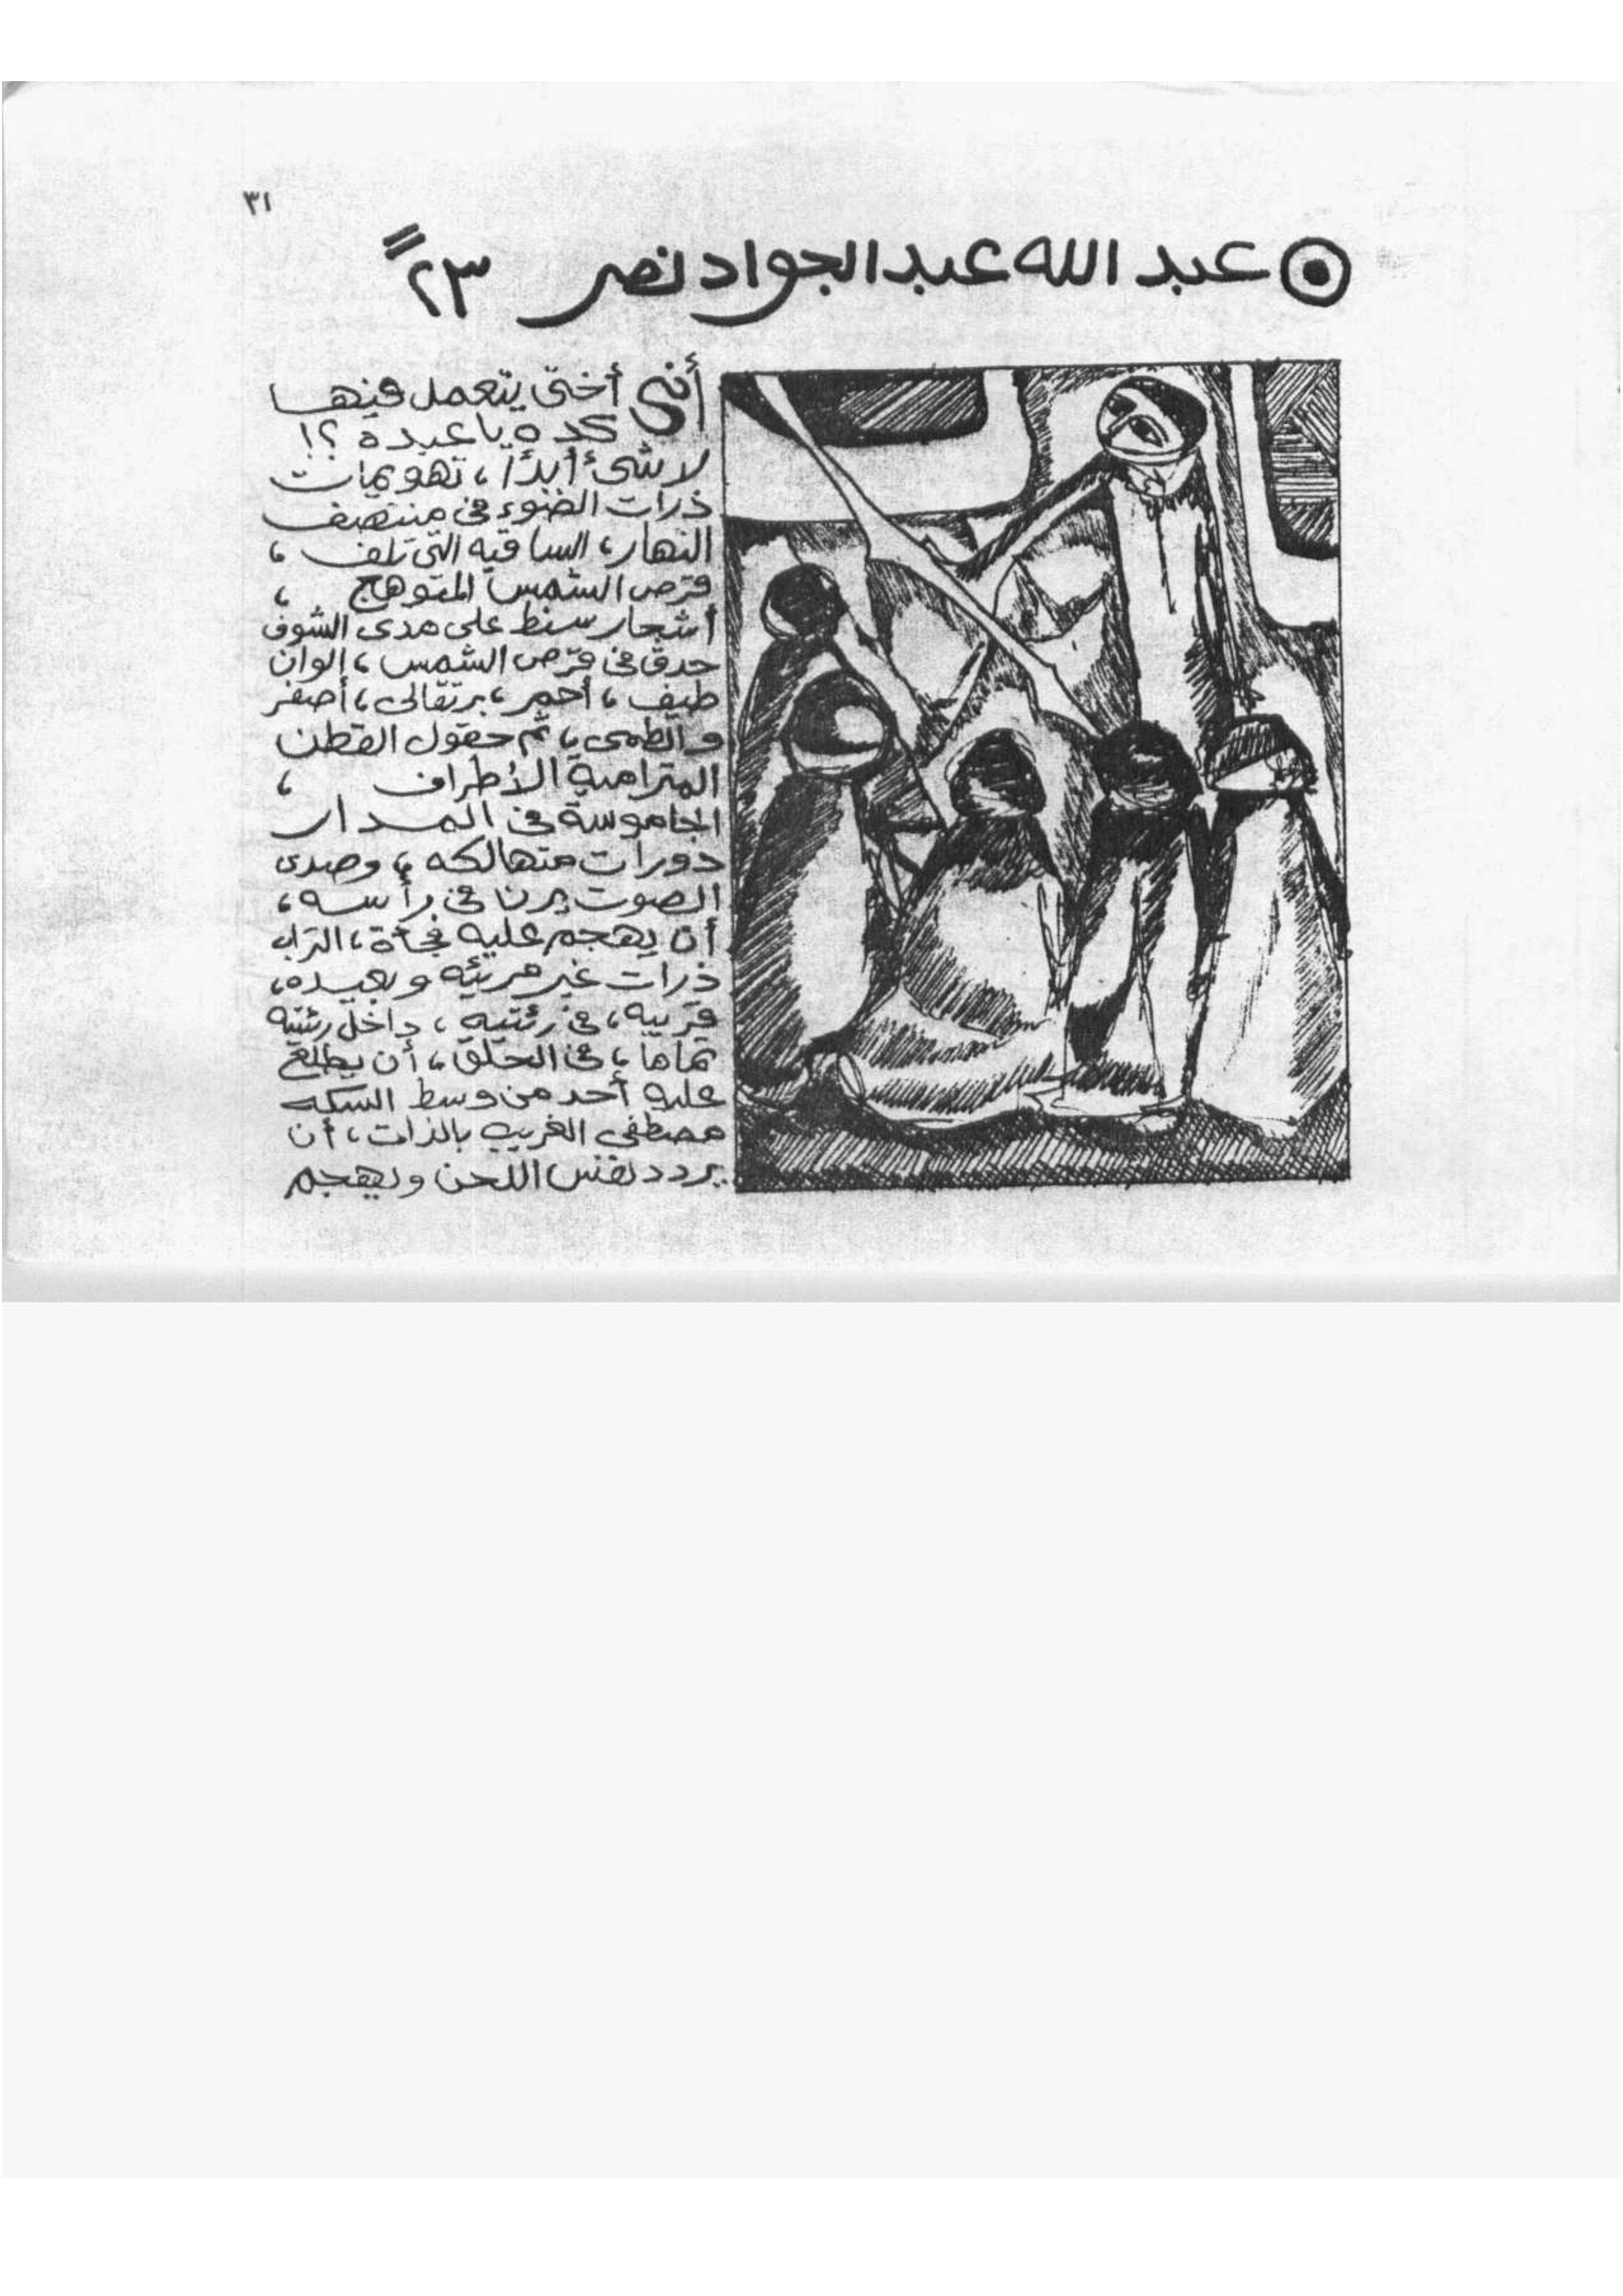 ٣١
عبد الله عبد الجواد نصر ٢٣
أنى أختى يتعمل فيها
كده يا عبده ؟!
لا شئ أبدًا ، تهويمات
ذرات الضوء فى منتصف
النهار ، الساقيه التى تلف ،
قرص الشمس المتوهج ،
أشجار سنط على مدى الشوف
حدق فى قرص الشمس ، الوان
طيف ، أحمر ، برتقالى ، أصفر
والطمى ، ثم حقول القطن
المترامية الأطراف ،
الجاموسة فى المدار
دورات متهالكه ، وصدى
الصوت يرن فى رأسه ،
أن يهجم عليه فجأة ، التراب
ذرات غير مرئيه وبعيده ،
قريبه ، فى رئتيه ، داخل رئتيه
تماما ، فى الحلق ، أن يطلع
عليه أحد من وسط السكه
مصطفى الغريب بالذات ، أن
يردد نفس اللحن ويهجم